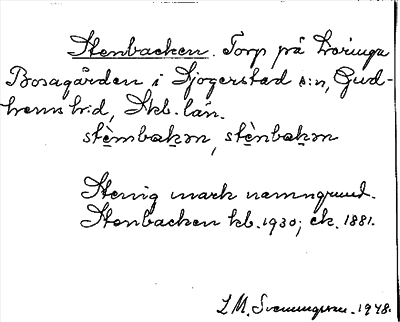 Stenbacken. Torp på Loringa
Bosagården i Sjogerstad s:n, Gud-
hems h:d, Skb. län.
stèmbakən, stènbakən
Stenig mark namngrund.
Stenbacken kb. 1930; ek. 1881.
L M. Svenungsson. 1948.